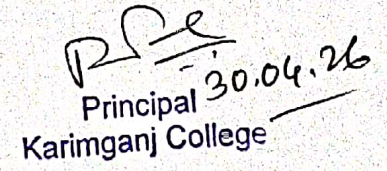 30.04.26
Principal
Karimganj College